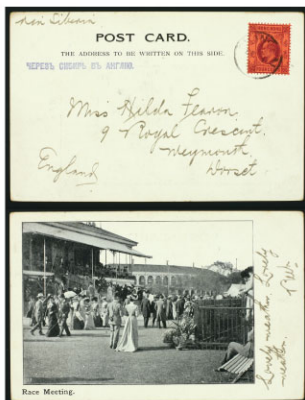 Via Siberia
POST CARD.
THE ADDRESS TO BE WRITTEN ON THIS SIDE.
ЧЕРЕЗЪ СИБИРЬ ВЪ АНГЛІЮ
Miss Hilda Fearon.
9 Royal Crescent.
Weymouth
Dorset.
England
Lovely weather. Lovely
weather.
Race Meeting.